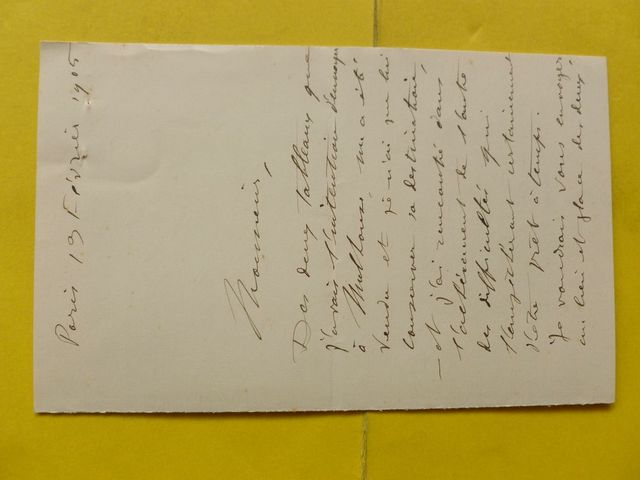 Paris 13 Février 1905
Monsieur,
Des deux tableaux que
j'avais l'intention d'envoyer
à Mulhouse un a été
vendu et je n'ai pu lui
conserver sa destination,
— et j'ai rencontré dans
l'achèvement de l'autre
des difficultés qui
l'empêcheront certainement
d'être prêt à temps.
Je voudrais vous envoyer
au lieu et place des deux,